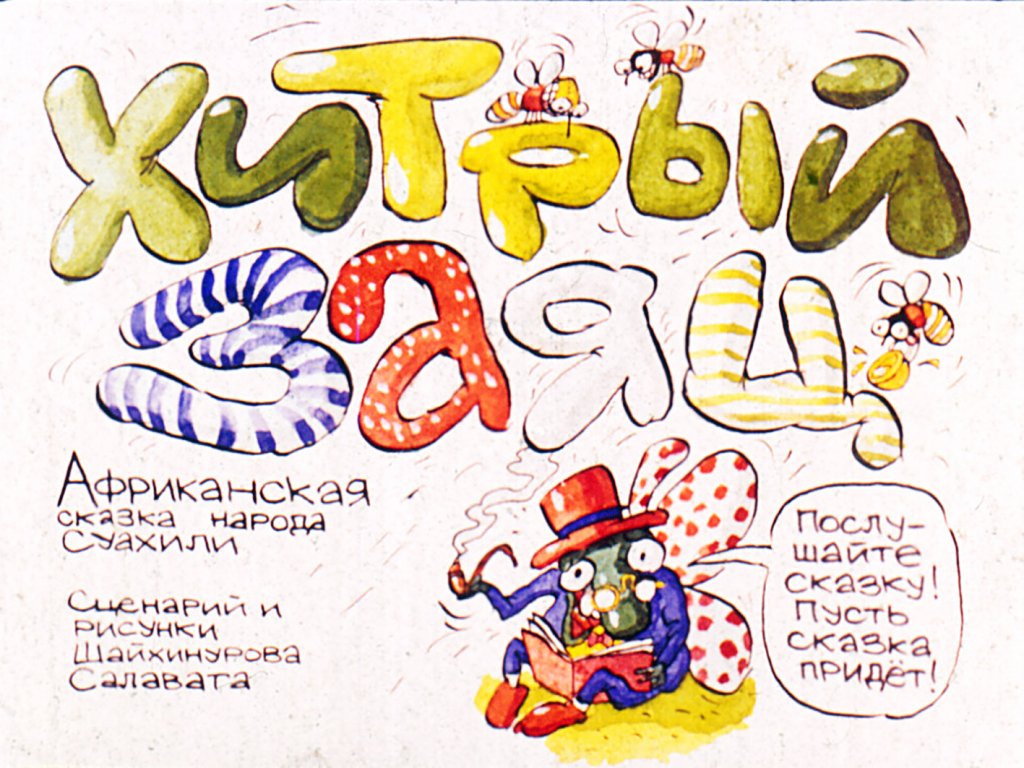 Хитрый
заяц
Африканская
сказка народа
Суахили
Сценарий и
рисунки
Шайхинурова
Салавата
Послу-
шайте
сказку!
Пусть
сказка
придёт!